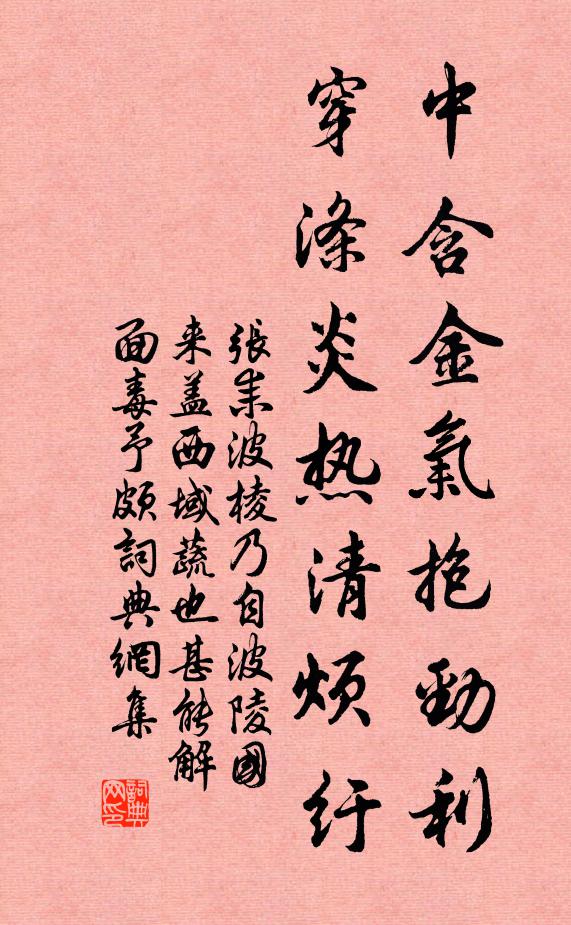 中含金氣抱勁利
穿滌炎热清煩紆
張耒波棱乃自波陵國
来盖西域蔬也甚能解
面毒予頗詞典網集
詞典網印